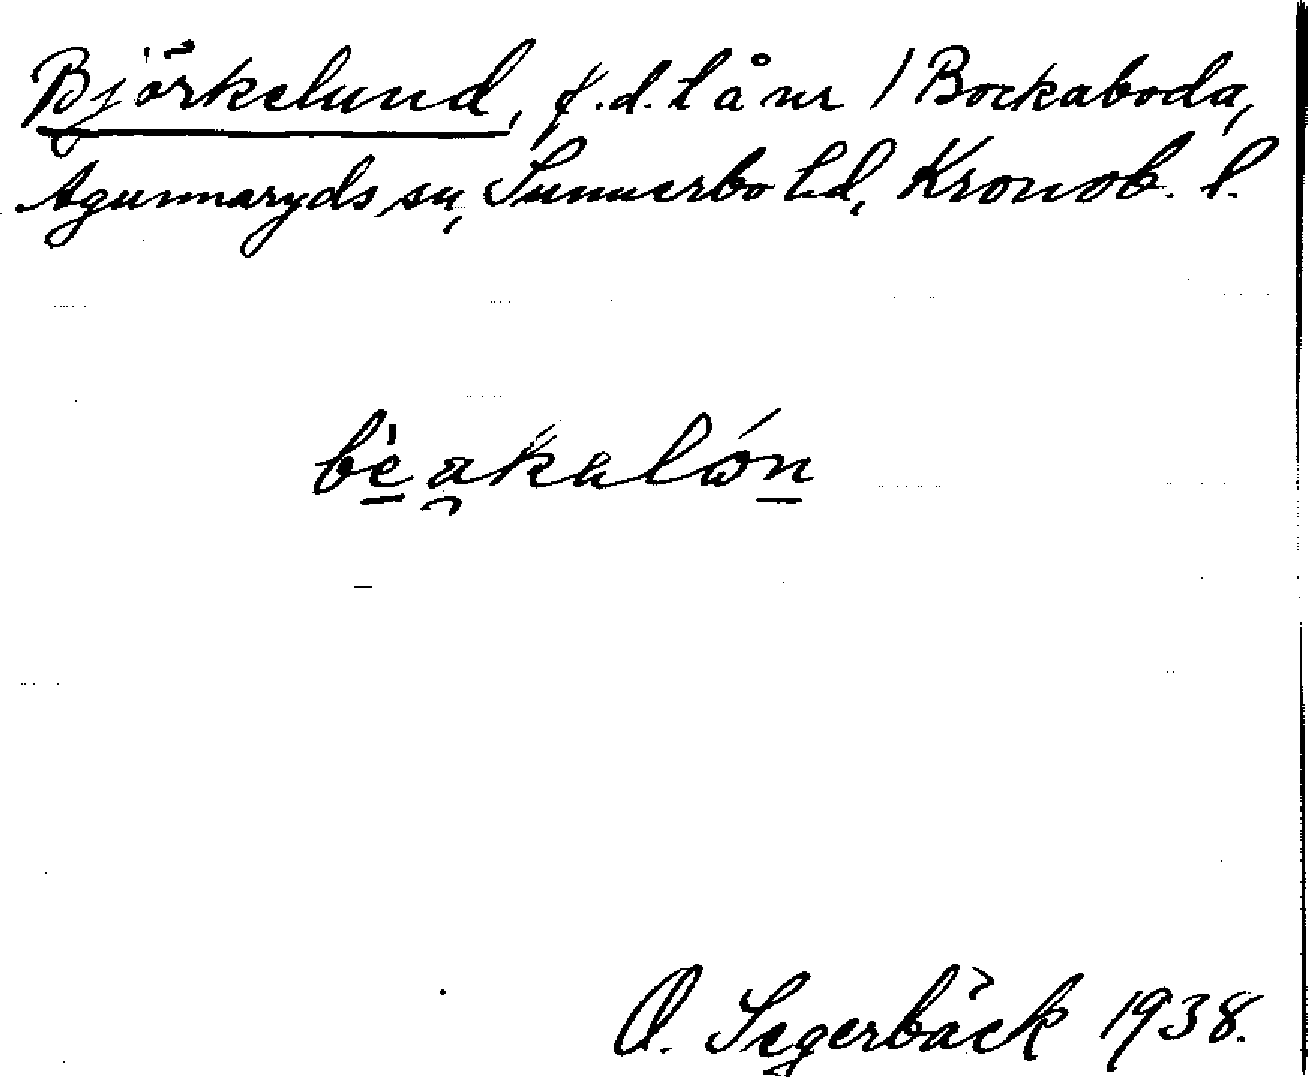 Björkelund, f.d. lånr / Bockaboda,
Agunnaryds sn, Sunnerbo hd, Kronob. l.
O. Segerbäck 1938.